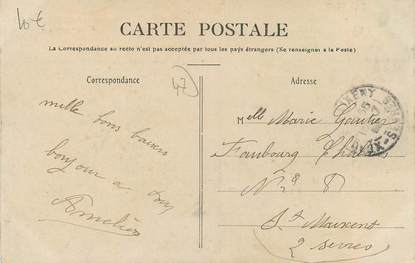 10 €
CARTE POSTALE
La Correspondance au recto n'est pas acceptée par tous les pays étrangers (Se renseigner à la Poste)
Correspondance
47
Adresse
mille bons baisers
bonjour a tous
Amelie
Melle Marie Gautier
Faubourg
N° 8
St Maixent
2 sevres